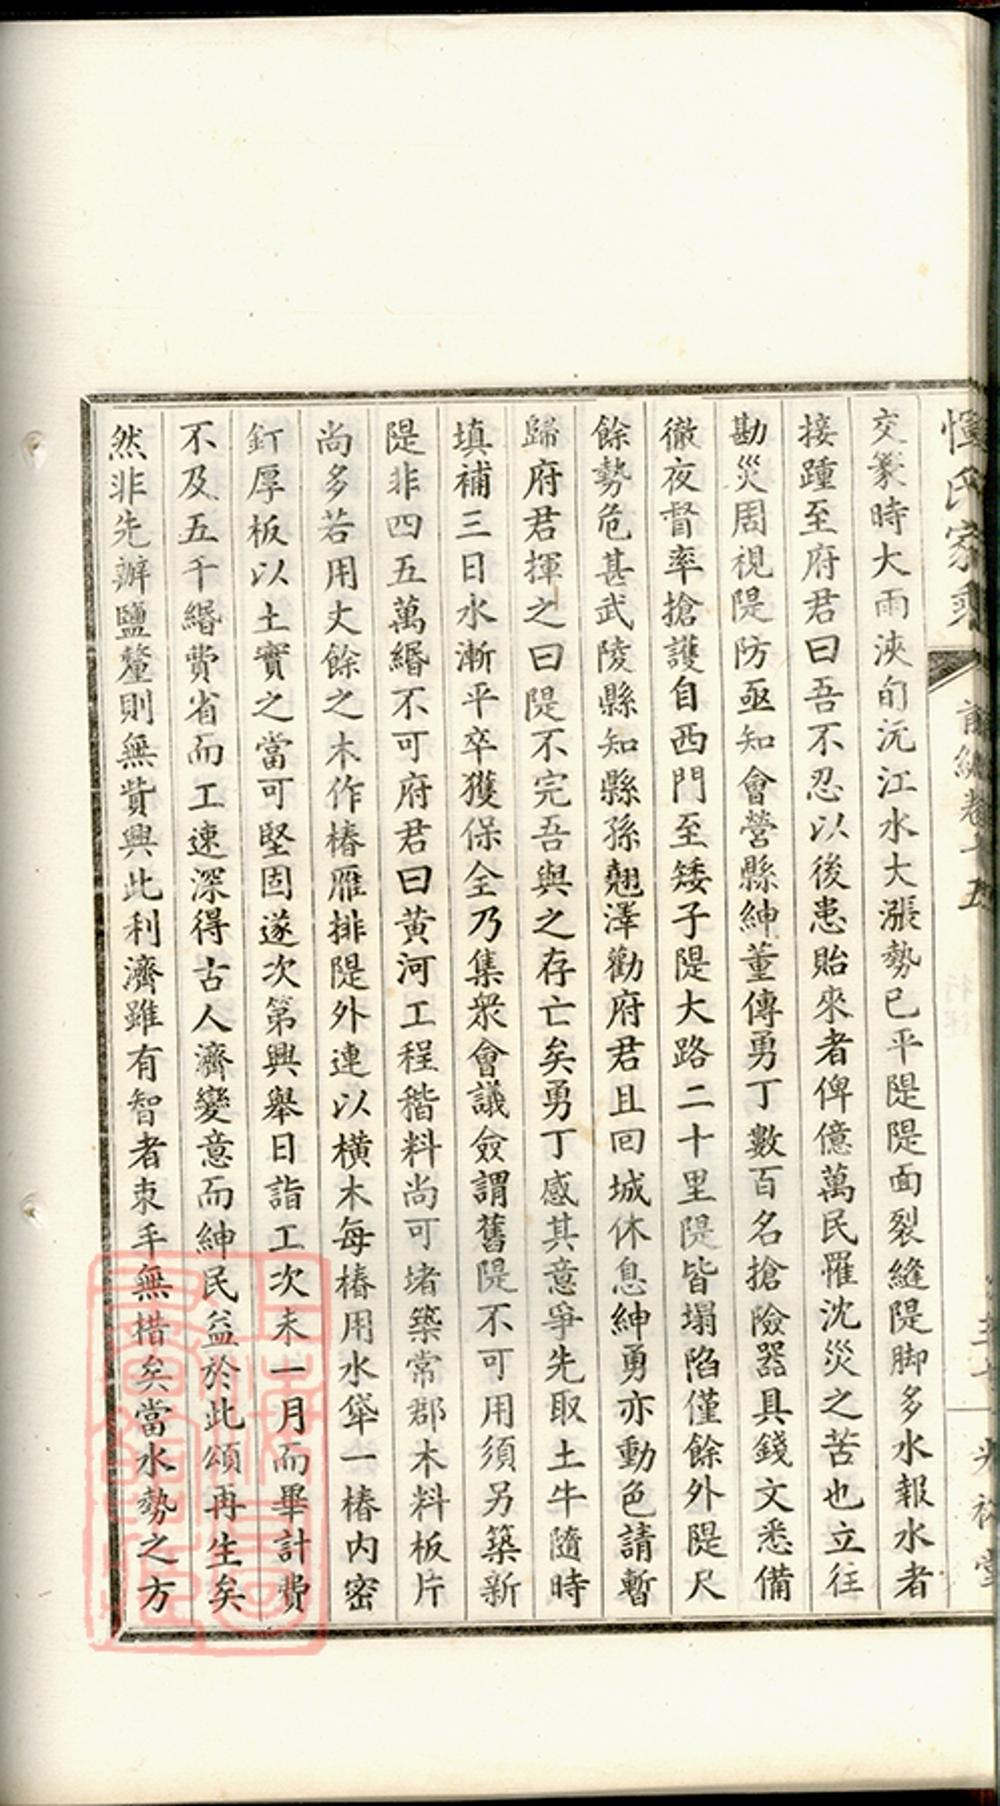 惲氏家乘　前編卷十五　光裕堂
交纂時大雨浹旬沅江水大漲勢已平隄隄面裂縫隄脚多水報水者
接踵至府君曰吾不忍以後患貽來者俾億萬民罹沈災之苦也立往
勘災周視隄防亟知會營縣紳董傳勇丁數百名搶險器具錢文悉備
徹夜督率搶護自西門至矮子隄大路二十里隄皆塌陷僅餘外隄尺
餘勢危甚武陵縣知縣孫翹澤勸府君且回城休息紳勇亦動色請暫
歸府君揮之曰隄不完吾與之存亡矣勇丁感其意爭先取土牛隨時
填補三日水漸平卒獲保全乃集衆會議僉謂舊隄不可用須另築新
隄非四五萬緡不可府君曰黄河工程稭料尚可堵築常郡木料板片
尚多若用丈餘之木作樁雁排隄外連以橫木每樁用水犖一樁内密
釘厚板以土實之當可堅固遂次第興舉日詣工次未一月而畢計費
不及五千緡費省而工速深得古人濟變意而紳民益於此頌再生矣
然非先辦鹽釐則無貲興此利濟雖有智者束手無措矣當水勢之方